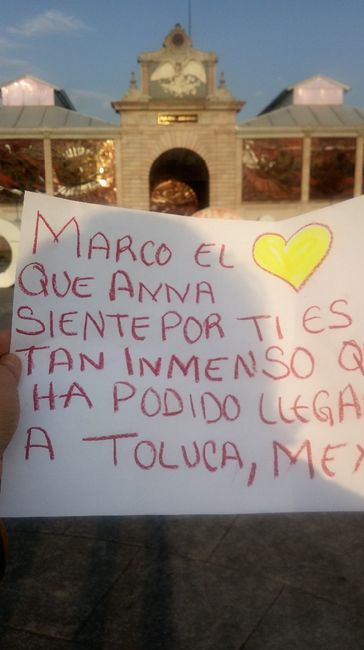 MARCO EL
QUE ANNA
SIENTE POR TI ES
TAN INMENSO Q
HA PODIDO LLEGA
A TOLUCA, MEX